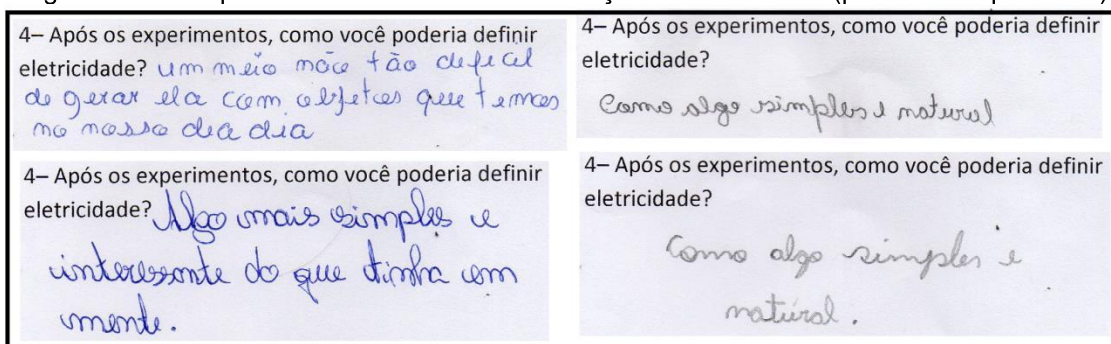 4– Após os experimentos, como você poderia definir
eletricidade? um meio não tão dificil
de gerar ela com objetos que temos
no nosso dia dia
4– Após os experimentos, como você poderia definir
eletricidade?
Como algo simples e natural
4– Após os experimentos, como você poderia definir
eletricidade? Algo mais simples e
interessante do que tinha em
mente.
4– Após os experimentos, como você poderia definir
eletricidade?
Como algo simples e
natural.